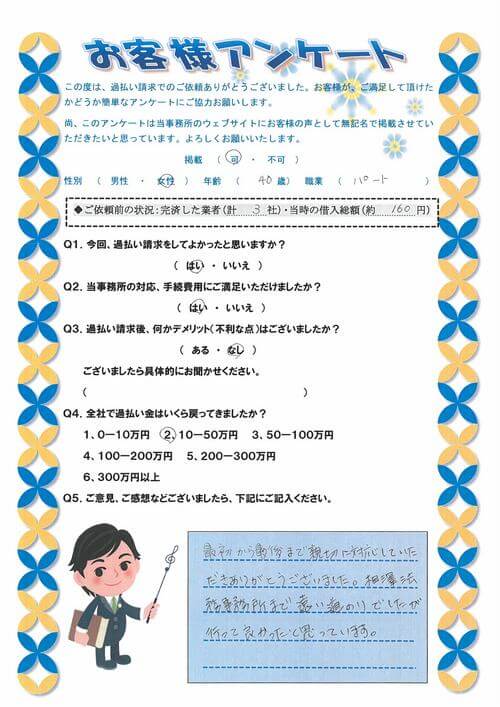 お客様アンケート
この度は、過払い請求でのご依頼ありがとうございました。お客様が、ご満足して頂けた
かどうか簡単なアンケートにご協力お願いします。
尚、このアンケートは当事務所のウェブサイトにお客様の声として無記名で掲載させてい
ただきたいと思っています。よろしくお願いいたします。
掲載 ( 可 ・ 不可 )
性別 ( 男性 ・ 女性 ) 年齢 ( 40 歳) 職業 ( パート )
◆ご依頼前の状況:完済した業者(計 3 社)・当時の借入総額(約 160 円)
Q1. 今回、過払い請求をしてよかったと思いますか?
( はい ・ いいえ )
Q2. 当事務所の対応、手続費用にご満足いただけましたか?
( はい ・ いいえ )
Q3. 過払い請求後、何かデメリット(不利な点)はございましたか?
( ある ・ なし )
ございましたら具体的にお聞かせください。
( )
Q4. 全社で過払い金はいくら戻ってきましたか?
1、0ー10万円 2、10ー50万円 3、50ー100万円
4、100ー200万円 5、200ー300万円
6、300万円以上
Q5. ご意見、ご感想などございましたら、下記にご記入ください。
最初から最後まで親切に対応していた
だきありがとうございました。相澤法
務事務所まで長い道のりでしたが
行って良かったと思っています。